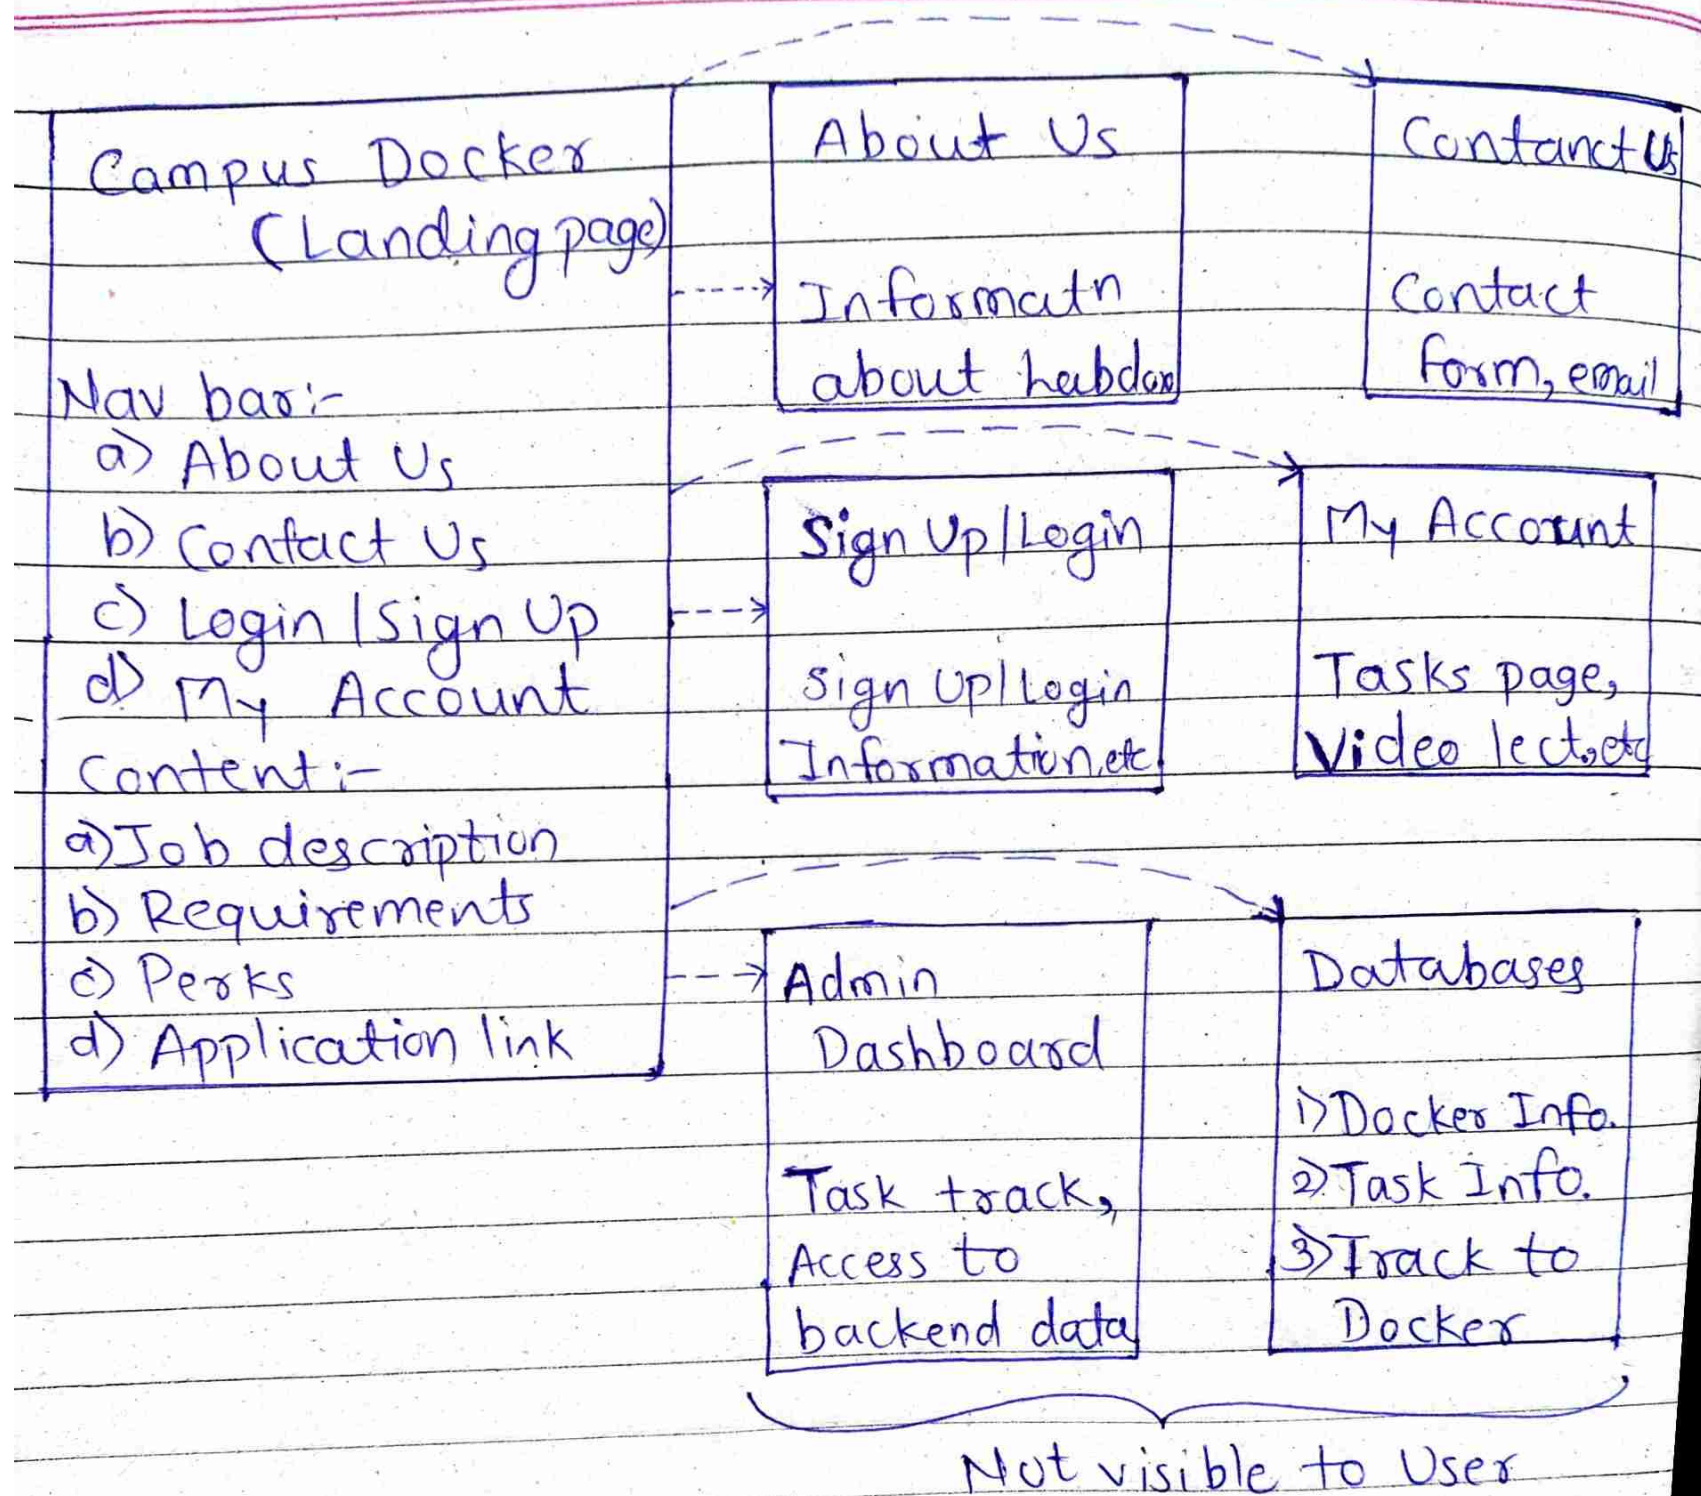 Campus Docker
(Landing page)
Nav bar:-
a) About Us
b) Contact Us
c) Login | Sign Up
d) My Account
Content:-
a) Job description
b) Requirements
c) Perks
d) Application link
About Us
Informatn
about hubdox
Contanct Us
Contact
form, email
Sign Up | Login
Sign Up | Login
Information, etc
My Account
Tasks page,
Video lect, etc
Admin
Dashboard
Task track,
Access to
backend data
Databases
1) Docker Info.
2) Task Info.
3) Track to
Docker
Not visible to User